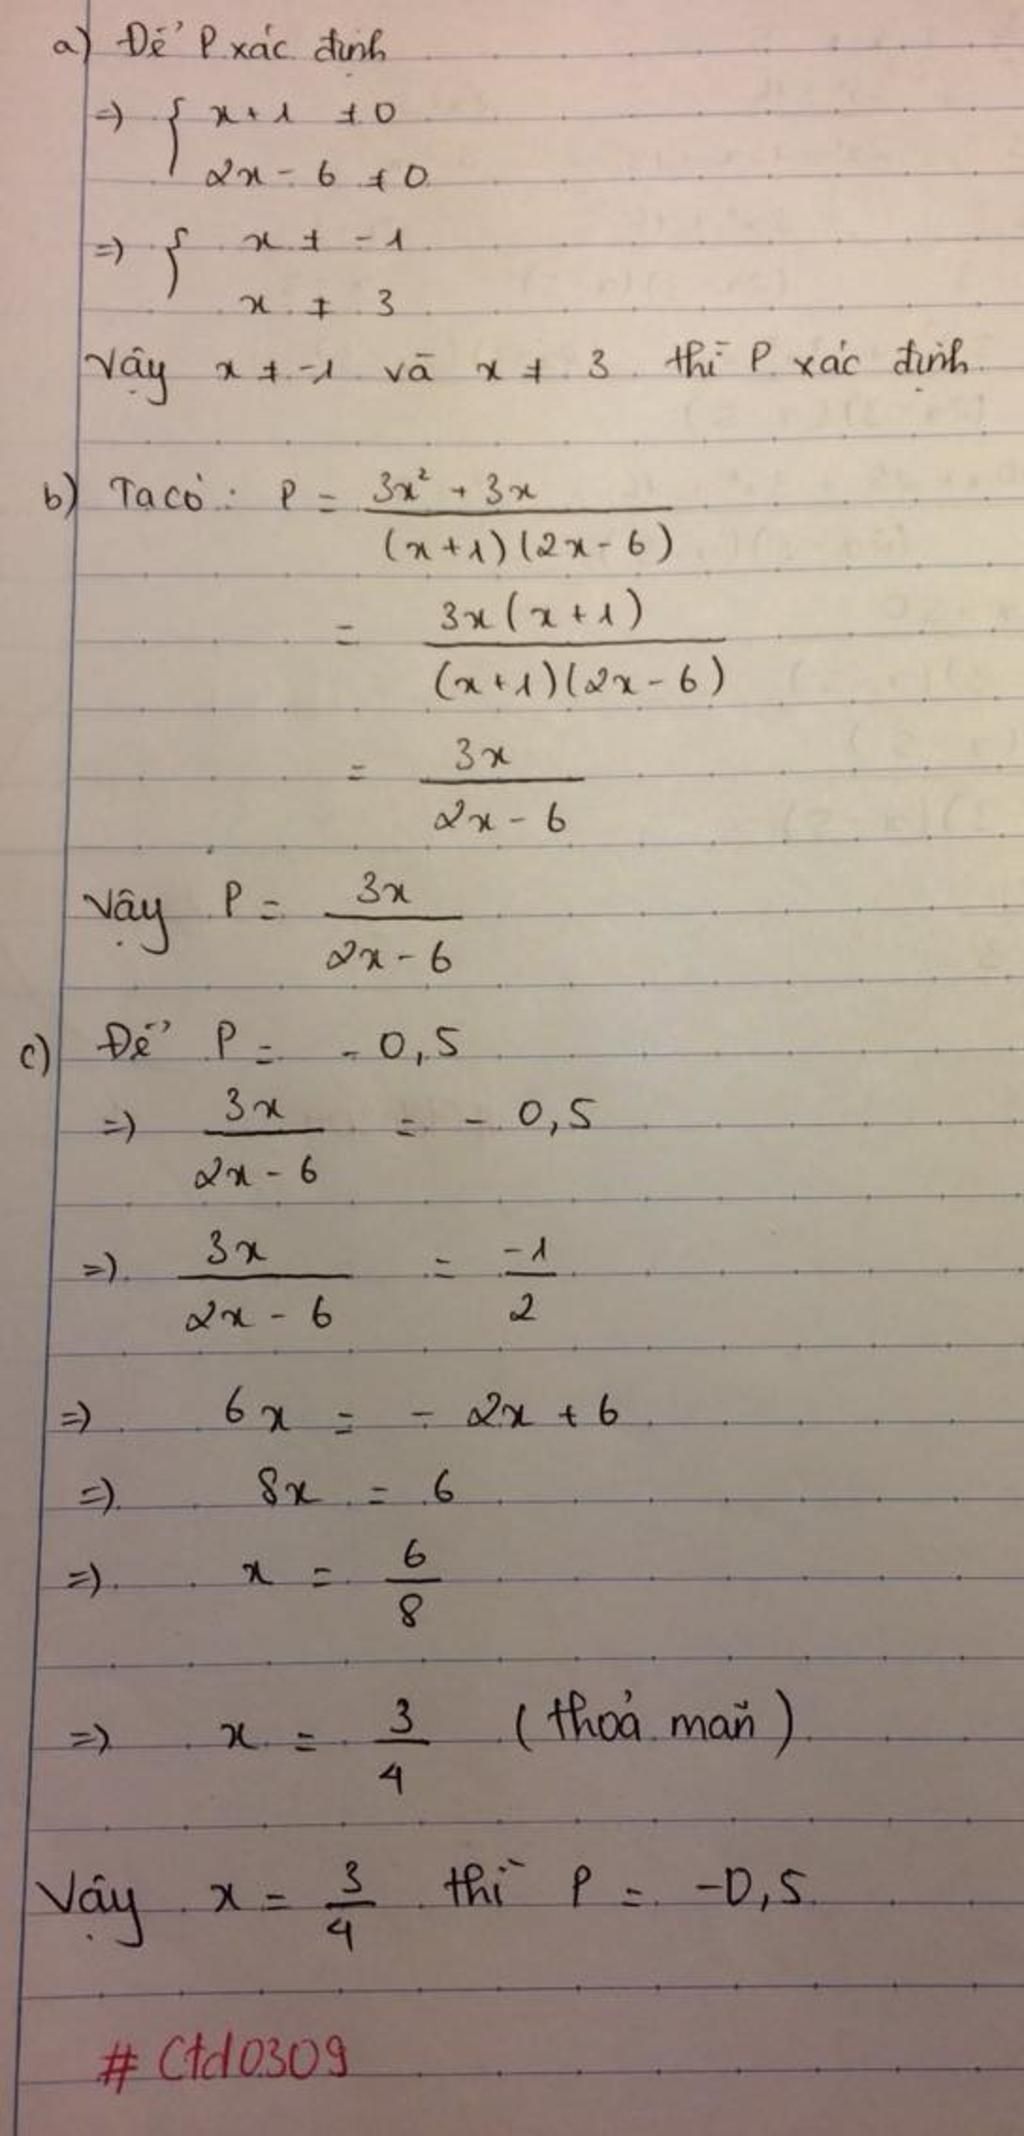 a) Để P xác định
=> { x + 1 ≠ 0
2x - 6 ≠ 0
=> { x ≠ -1
x ≠ 3
Vậy x ≠ -1 và x ≠ 3 thì P xác định
b) Ta có: P = \frac{3x² + 3x}{(x+1)(2x-6)}
= \frac{3x(x+1)}{(x+1)(2x-6)}
= \frac{3x}{2x-6}
Vậy P = \frac{3x}{2x-6}
c) Để P = -0,5
=> \frac{3x}{2x-6} = -0,5
=> \frac{3x}{2x-6} = \frac{-1}{2}
=> 6x = -2x + 6
=> 8x = 6
=> x = \frac{6}{8}
=> x = \frac{3}{4} (thoả mãn)
Vậy x = \frac{3}{4} thì P = -0,5
# Ctd0309